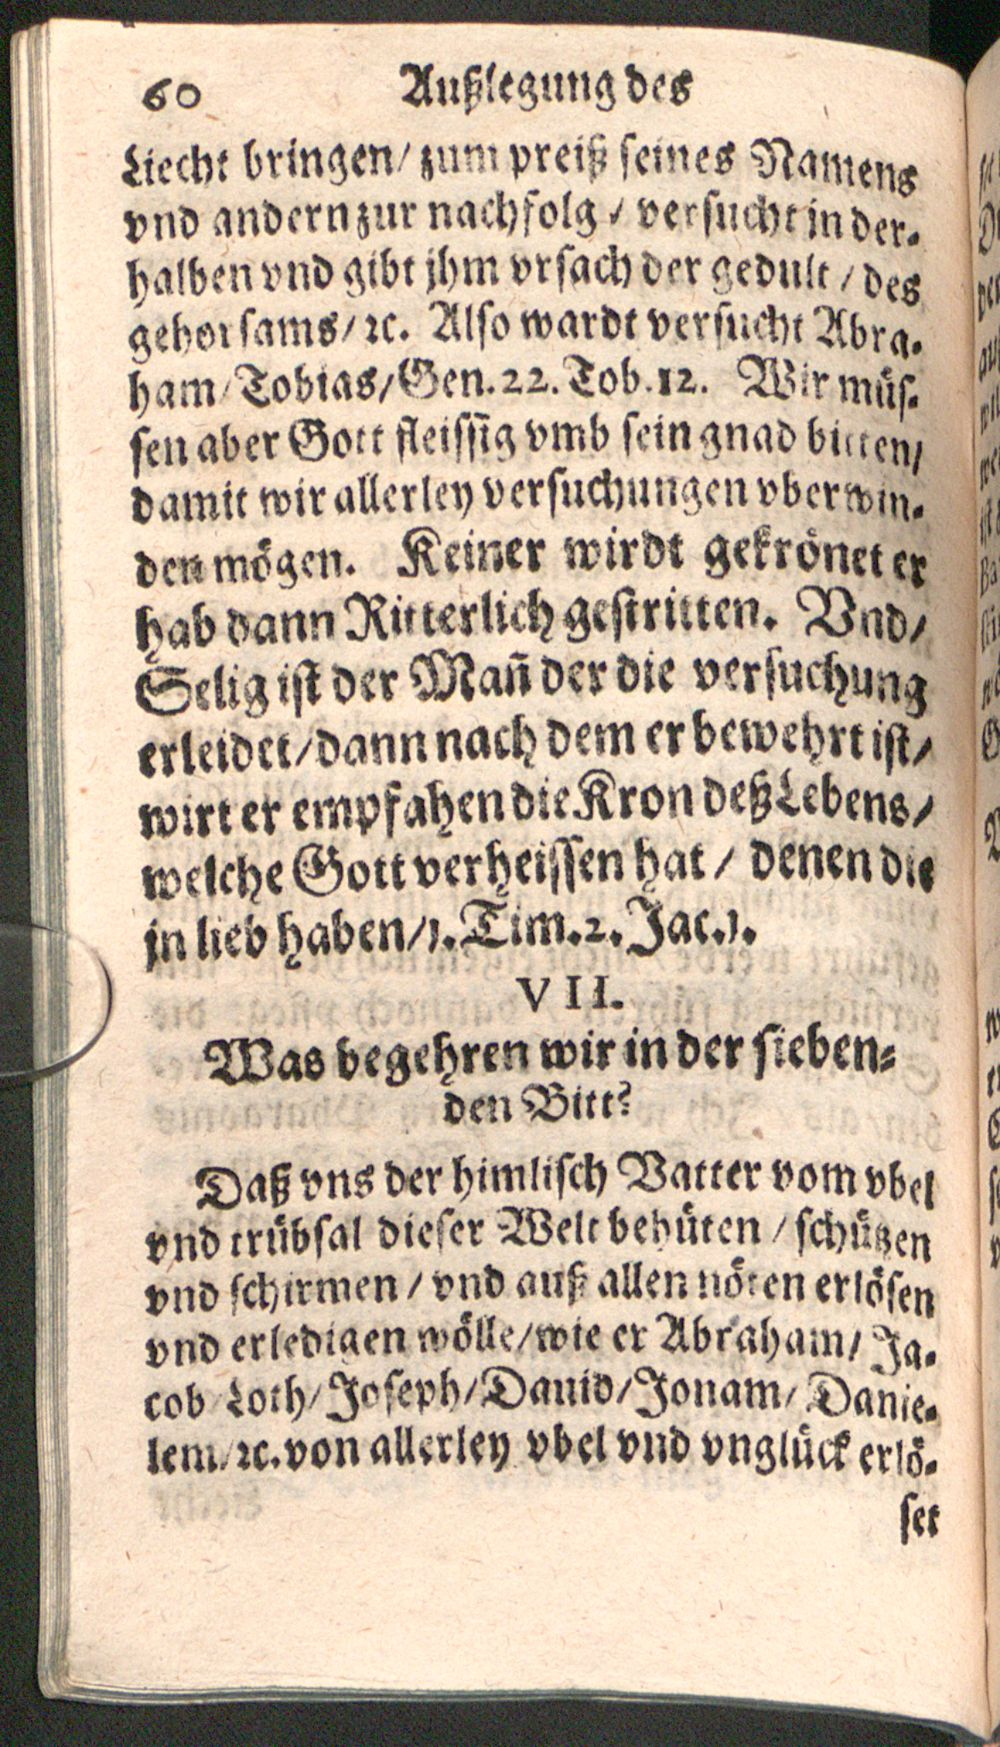 60 Außlegung des
Liecht bringen/ zum preiß seines Namens
vnd andern zur nachfolg / versucht jn der-
halben vnd gibt jhm vrsach der gedult / des
gehorsams/ ꝛc. Also wardt versucht Abra-
ham/ Tobias/ Gen. 22. Tob. 12. Wir müs-
sen aber Gott fleissig vmb sein gnad bitten/
damit wir allerley versuchungen vberwin-
den mögen. Keiner wirdt gekrönet er
hab dann Ritterlich gestritten. Vnd/
Selig ist der Mañ der die versuchung
erleidet/ dann nach dem er bewehrt ist/
wirt er empfahen die Kron deß Lebens/
welche Gott verheissen hat / denen die
jn lieb haben/ 1. Tim. 2. Jac. 1.
VII.
Was begehren wir in der sieben-
den Bitt?
Daß vns der himlisch Vatter vom vbel
vnd trübsal dieser Welt behüten / schützen
vnd schirmen / vnd auß allen nöten erlösen
vnd erledigen wölle/ wie er Abraham/ Ja-
cob/ Loth/ Joseph/ Dauid/ Jonam/ Danie-
lem/ ꝛc. von allerley vbel vnd vnglück erlö-
set